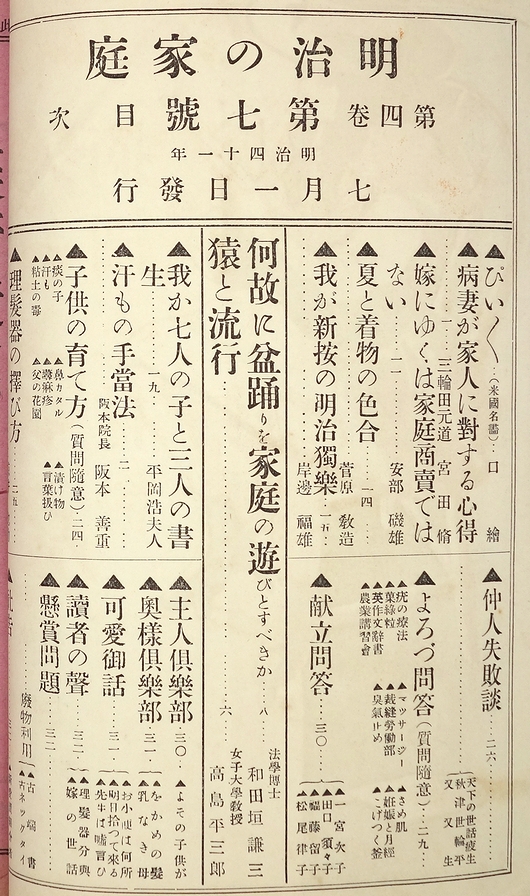 明治の家庭
第四卷第七號目次
明治四十一年
七月一日發行
▲ぴい〱（米國名鑑）口繪
▲病妻が家人に對する心得
三輪田元道 宮田脩
▲嫁にゆくは家庭商賣では
ない 二一 安部磯雄
▲夏と着物の色合 一四 菅原教造
▲我が新按の明治獨樂 一五 岸邊福雄
▲仲人失敗談 二六
天下の世話疲生
秋津世輪平
又又生
▲よろづ問答（質問隨意）二九
▲疣の療法 ▲マツサージー ▲さめ肌
▲菓綠粒 ▲裁縫勞働部 ▲妊娠と月經
▲英作文辭書 ▲臭氣止め ▲こげつく釜
▲農業講習會
▲献立問答 三〇
▲一宮次子
▲田口須々子
▲幅藤留子
▲松尾律子
何故に盆踊りを家庭の遊びとすべきか 八 法學博士 和田垣謙三
猿と流行 六 女子大學教授 高島平三郎
▲我か七人の子と三人の書
生 一九 平岡浩夫人
▲汗もの手當法 二 阪本院長 阪本善重
▲子供の育て方（質問隨意）二四
▲痰の子 ▲鼻カタル ▲漬け物
▲汗も ▲蕁麻疹 ▲言葉扱ひ
▲粘土の器 ▲父の花園
▲理髮器の擇び方 二五
▲主人倶樂部 三〇 ▲よその子供が
▲奥樣倶樂部 三一 ▲をかめの髮 ▲乳なき母
▲可愛御話 三一 ▲お小使は何所 ▲明日拾つて來る ▲先生は嘘言ひ
▲讀者の聲 三二 ▲理髮器分典 ▲嫁の世話
▲懸賞問題 三二
廢物利用
▲古端書
▲古ネツクタイ